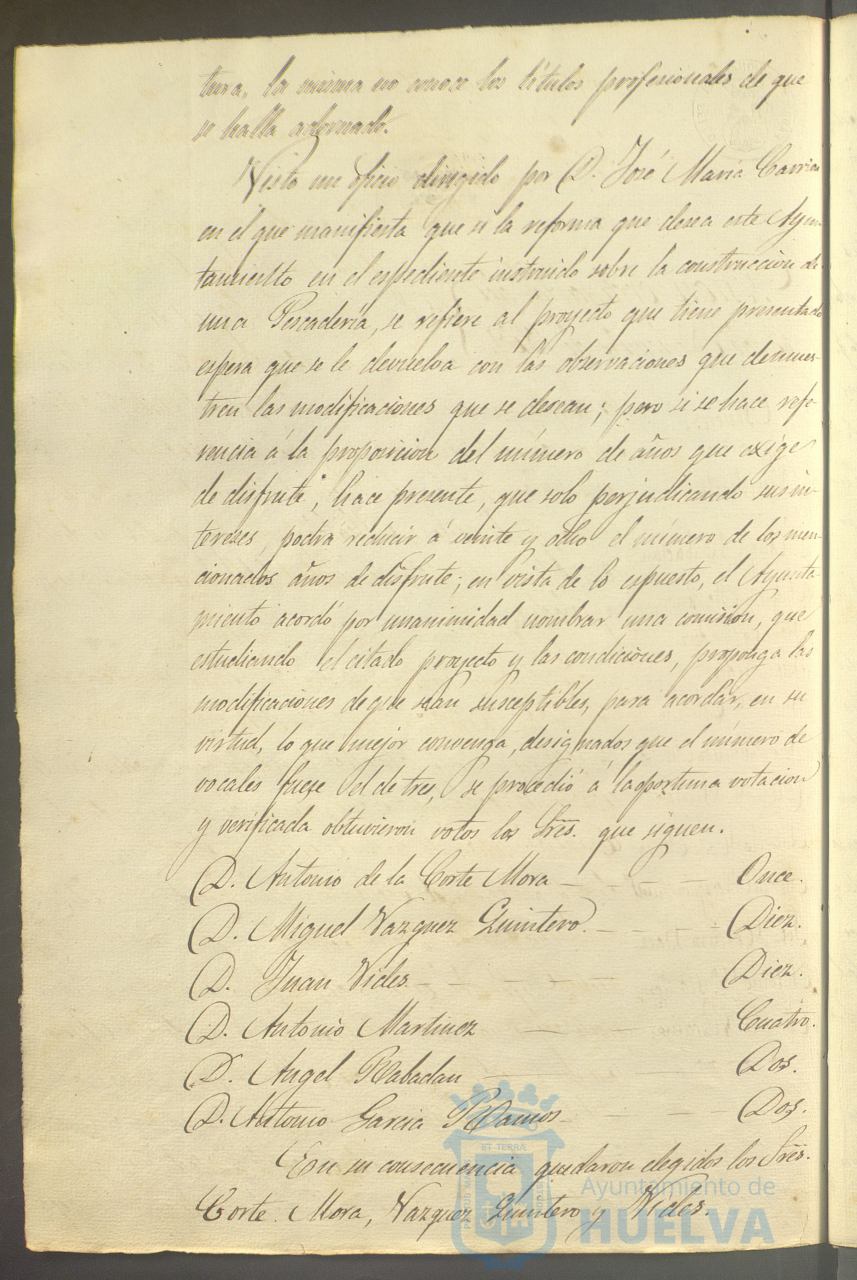 tura, la misma no conoce los títulos profesionales de que
se halla adornado.
Visto un oficio dirigido por D. José María Carrion
en el que manifiesta que si la reforma que desea este Ayun-
tamiento en el espediente instruido sobre la construccion de
una Pescadería, se refiere al proyecto que tiene presentado
espera que se le devuelva con las observaciones que demues-
tren las modificaciones que se desean; pero si se hace refe-
rencia á la proposicion del número de años que exige
de disfrute, hace presente, que solo perjudicando sus in-
tereses, podrá reducir á veinte y ocho el número de los men-
cionados años de disfrute; en vista de lo espuesto, el Ayunta-
miento acordó por unanimidad nombrar una comision, que
estudiando el citado proyecto y las condiciones, proponga las
modificaciones de que sean susceptibles, para acordar, en su
virtud, lo que mejor convenga, designados que el número de
vocales fuese el de tres, se procedió á la oportuna votacion
y verificada obtuvieron votos los Sres. que siguen.
D. Antonio de la Corte Mora - - - Once.
D. Miguel Vazquez Quintero. - - - Diez.
D. Juan Vides - - - - Diez.
D. Antonio Martinez - Cuatro.
D. Angel Rabadan - - - Dos.
D. Antonio Garcia Ramos - - - Dos.
En su consecuencia quedaron elegidos los Sres.
Corte Mora, Vazquez Quintero y Vides.
Ayuntamiento de
HUELVA